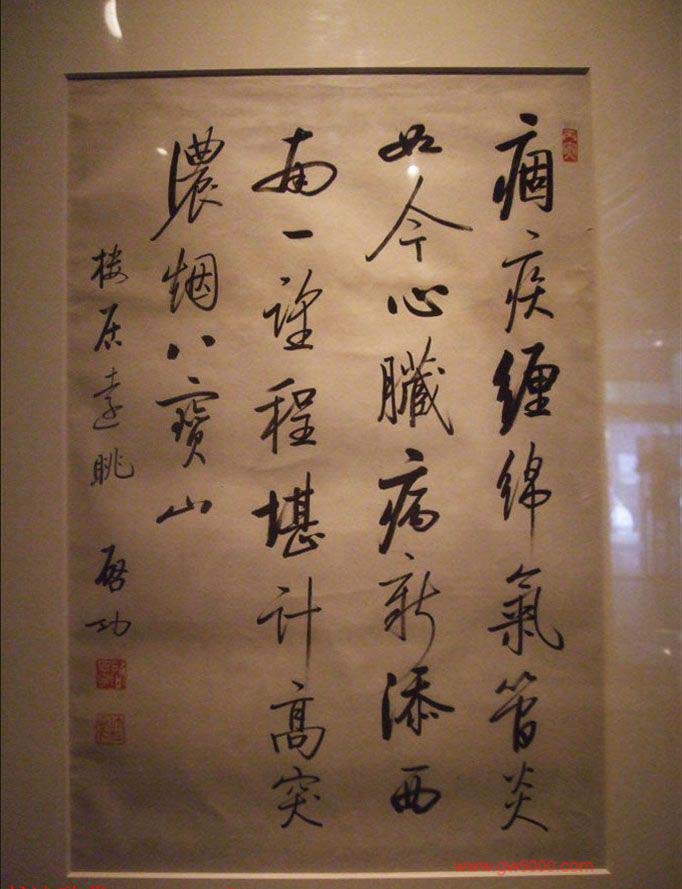 痼疾缠綿氣管炎
如今心臓病新添西
南一望程堪計高突
濃烟八寶山
樓居遠眺
啓功
www.gw8000.com